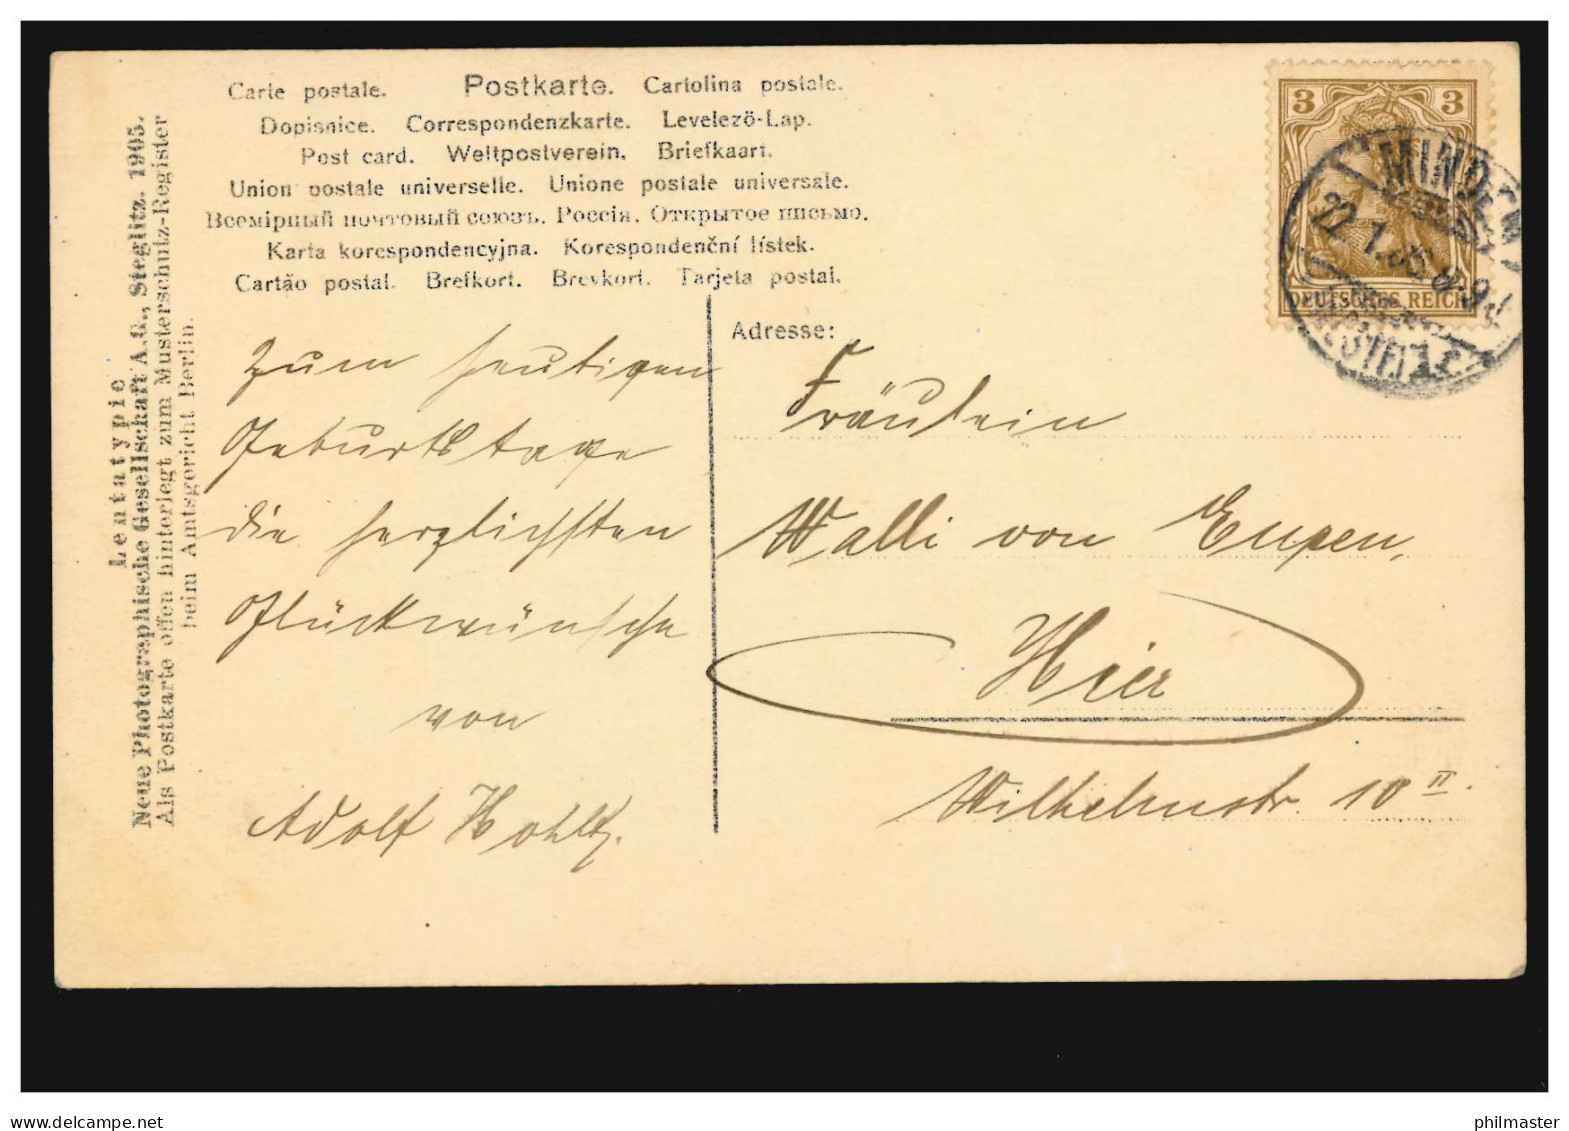 Carte postale. Postkarte. Cartolina postale.
Dopisnice. Correspondenzkarte. Levelezö-Lap.
Post card. Weltpostverein. Briefkaart.
Union postale universelle. Unione postale universale.
Всемірный почтовый союзъ. Россія. Открытое письмо.
Karta korespondencyjna. Korespondenční lístek.
Cartão postal. Brefkort. Brevkort. Tarjeta postal.
Lentatypie
Neue Photographische Gesellschaft A.G., Steglitz. 1905.
Als Postkarte offen hinterlegt zum Musterschutz-Register
beim Amtsgericht Berlin.
Zum heutigen
Geburtstage
die herzlichsten
Glückwünsche
von
Adolf
3 3
DEUTSCHES REICH
MINDEN
22.1. 8-9
Adresse:
Fräulein
Walli von Eupen,
Hier
Wilhelmstr. 10 II.
philmaster
www.delcampe.net